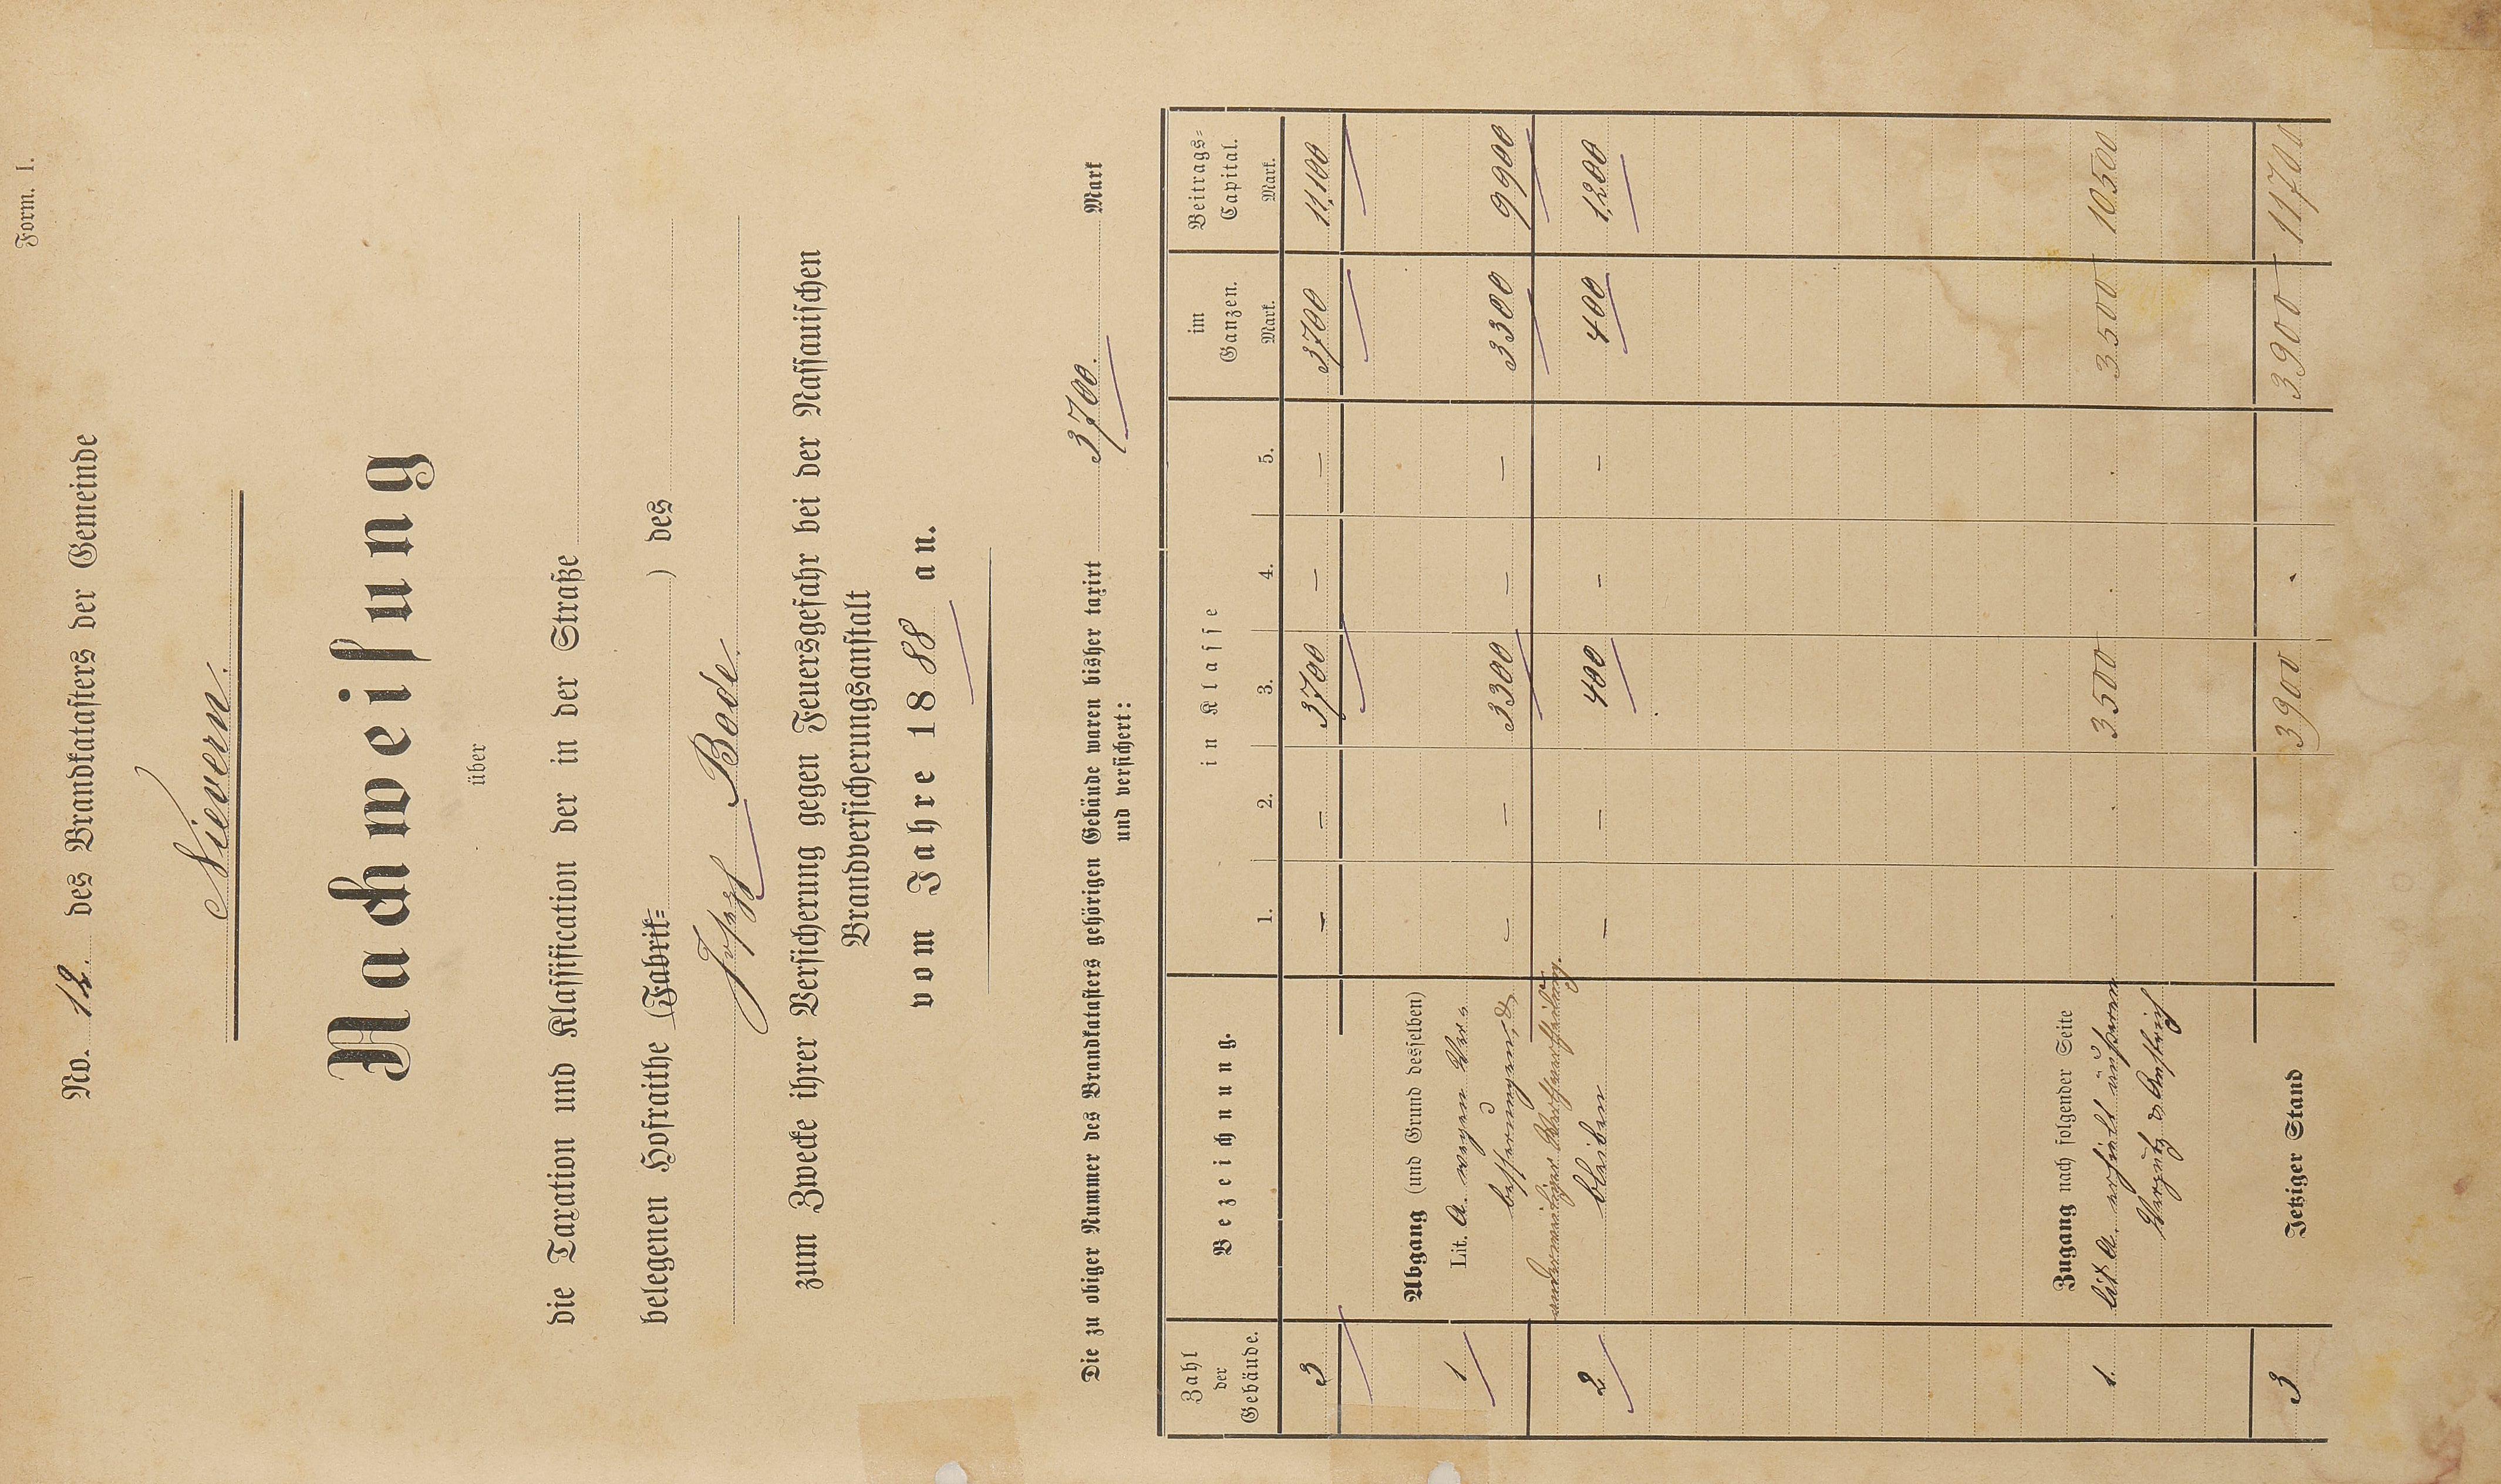 Form. I.
No. 12. des Brandkatasters der Gemeinde
Nievern.
Nachweisung
über
die Taxation und Klassification der in der Straße
belegenen Hofraithe (Fabrik= ) des
Josef Bode.
zum Zwecke ihrer Versicherung gegen Feuersgefahr bei der Nassauischen
Brandversicherungsanstalt
vom Jahre 1888 an.
Die zu obiger Nummer des Brandkatasters gehörigen Gebäude waren bisher taxirt 3700. Mark
und versichert:
Zahl der Gebäude. Bezeichnung. in Klasse im Ganzen. Beitrags= Capital.
1. 2. 3. 4. 5. Mark. Mark.
3 – – 3700 – – 3700 11,100
Abgang (und Grund desselben)
Lit. a. wegen Ver=
1 besserungen & – – 3300 – – 3300 9900
anderweitiger Werthsertheilung.
2 bleiben – – 400 – – 400 1,200
Zugang nach folgender Seite
1. lit a. erhielt äußeren . . 3500 . . 3500 10500
Verputz & Anstrich
3 Jetziger Stand . . 3900 . . 3900 11700